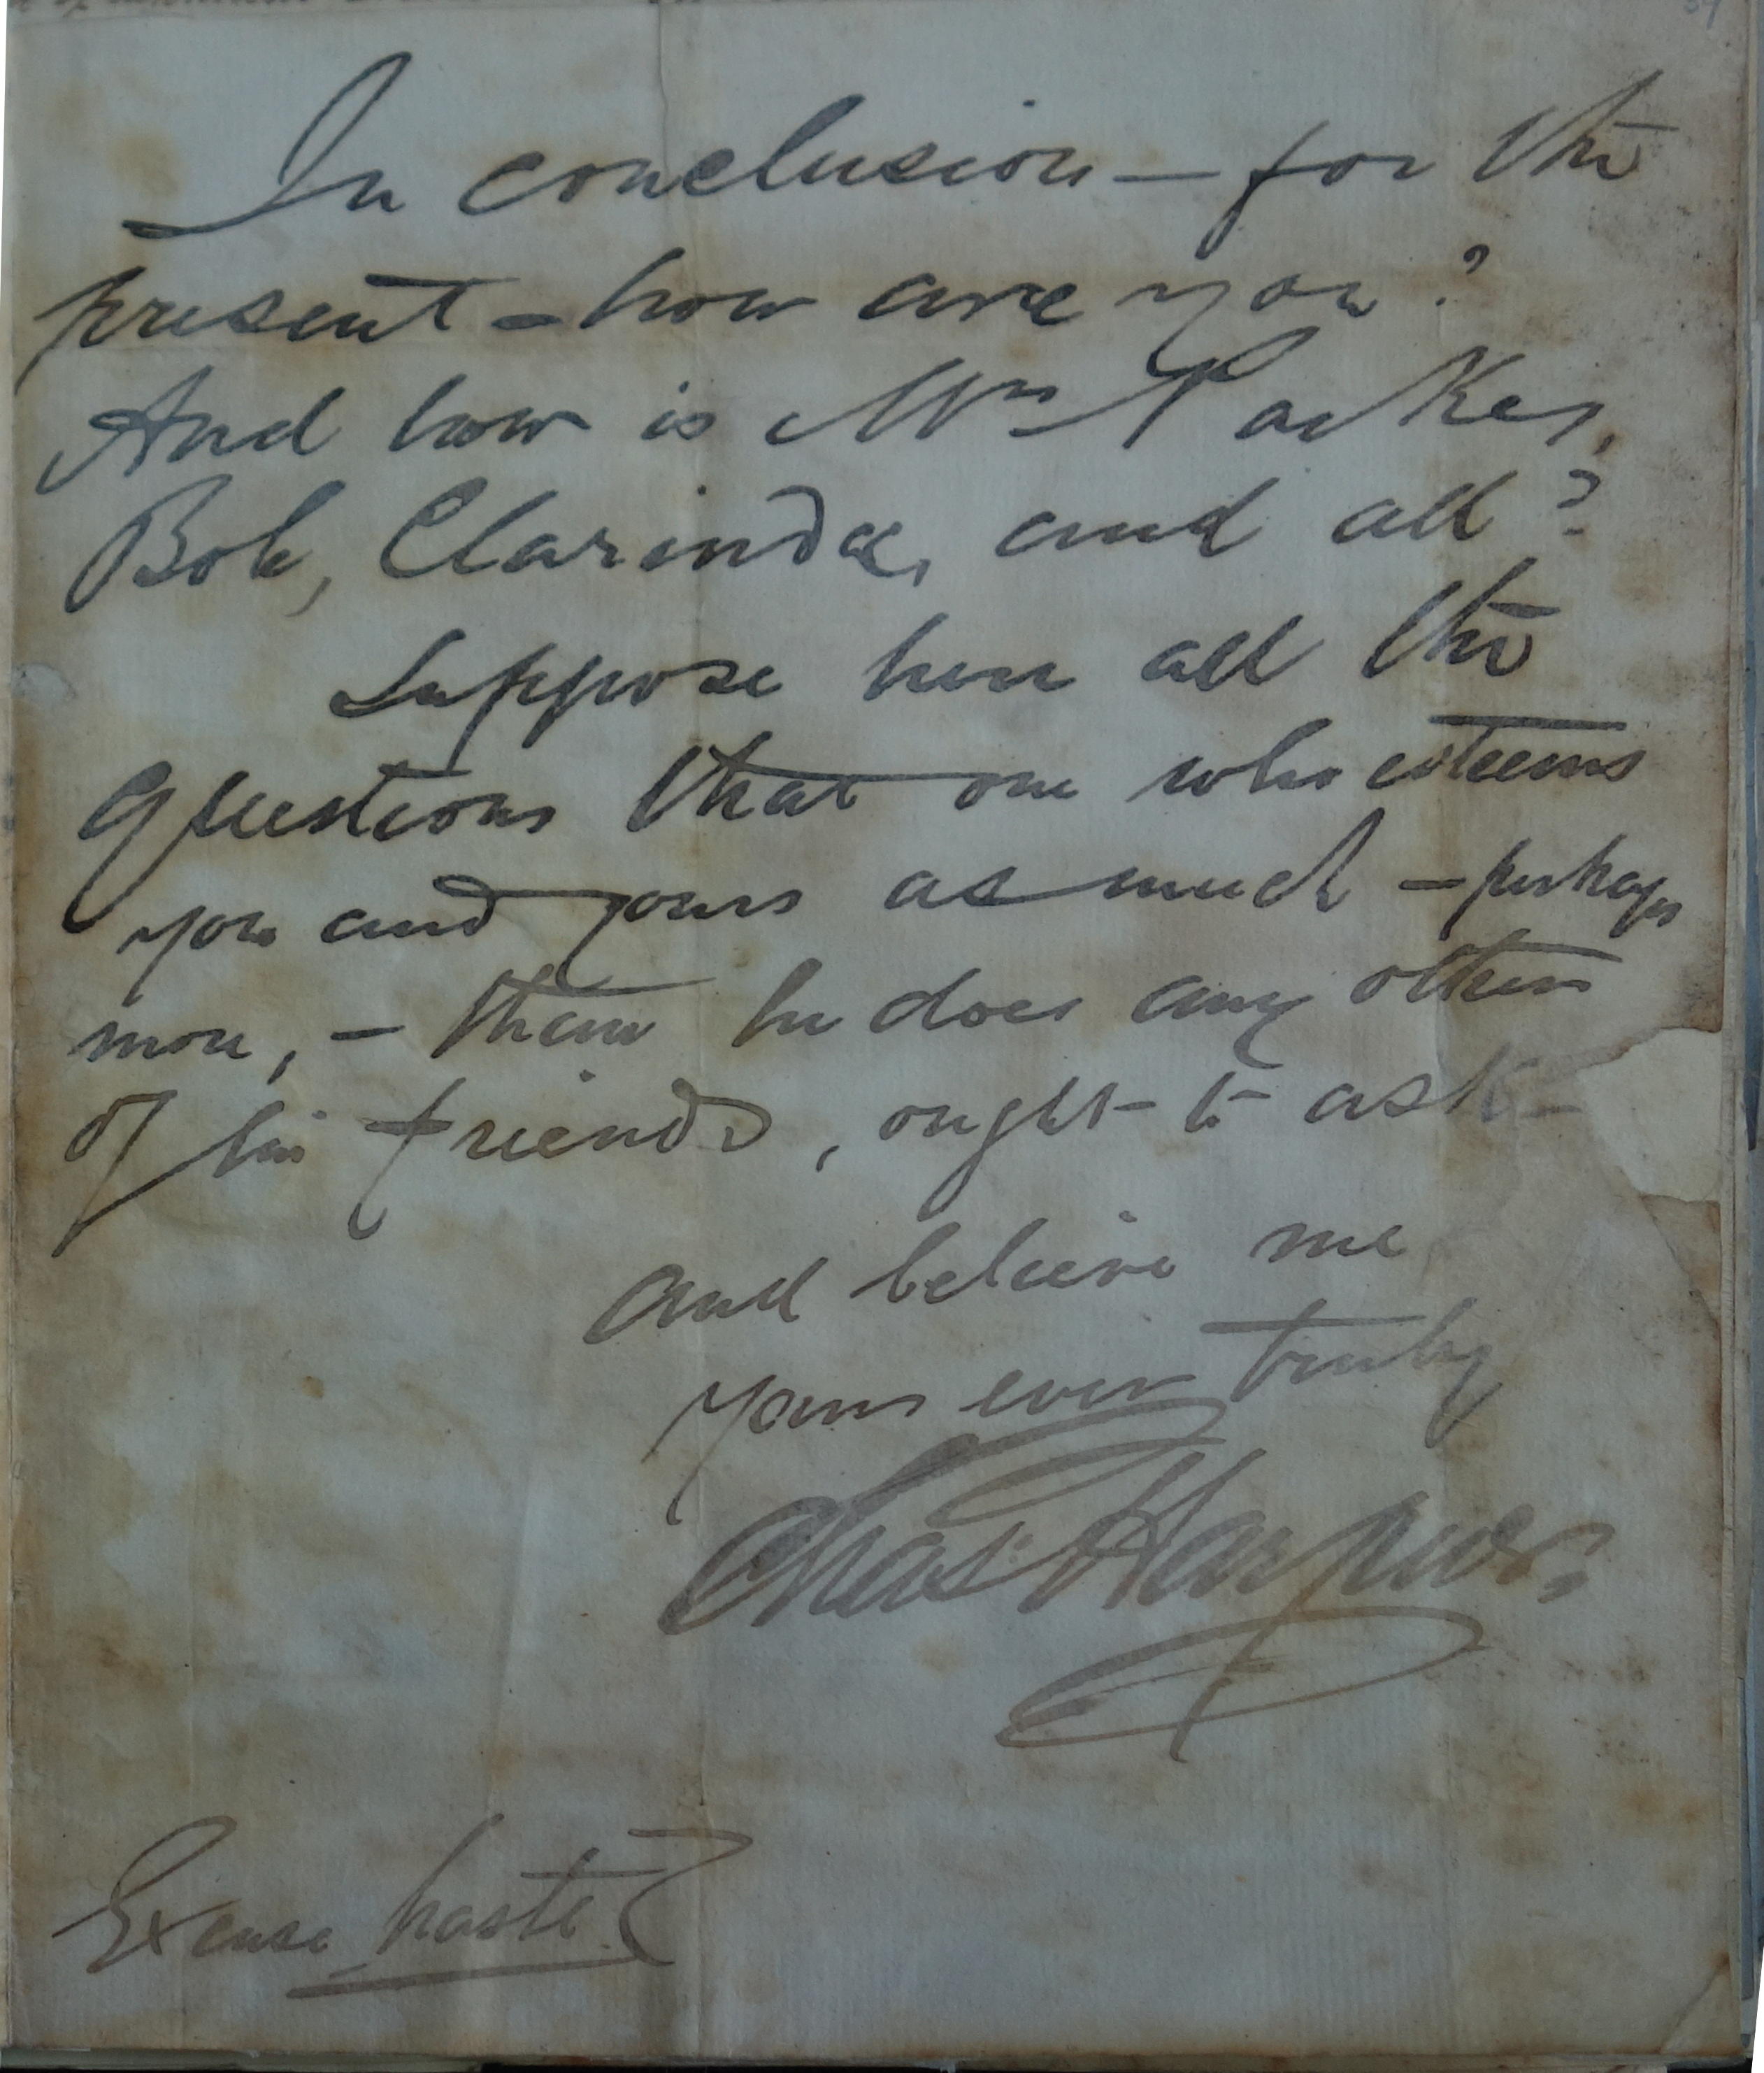 In conclusion — for the
present — how are you?
And how is Mrs Parkes,
Bob, Clarinda, and all?
Suppose here all the
questions that one who esteems
you and yours as much — perhaps
more, — than he does any other
of his friends, ought to ask —
and believe me
yours ever truly
Chas: Harpur.
Excuse haste.